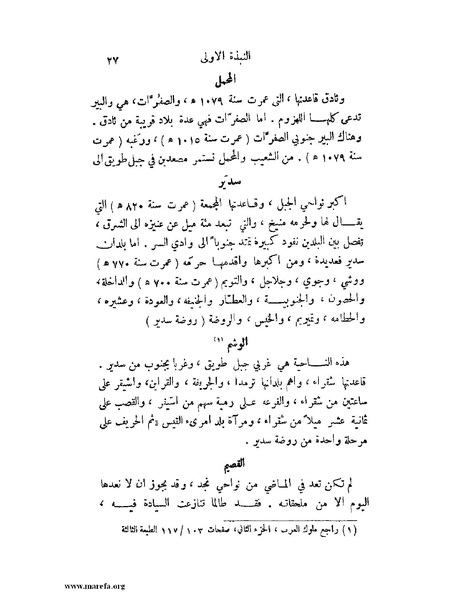 النبذة الاولى ٢٧
المحمل
وثادق قاعدتها ، التي عمرت سنة ١٠٧٩ ه ، والصفرّات ، هي والبير
تدعى كلها اللهزوم . اما الصفرّات فهي عدة بلاد قريبة من ثادق .
وهناك البير جنوبي الصفرّات ( عمرت سنة ١٠١٥ ه ) ، ورغبه ( عمرت
سنة ١٠٧٩ ه ) . من الشعيب والمحمل نستمر مصعدين في جبل طويق الى
سدير
اكبر نواحي الجبل ، وقاعدتها المجمعة ( عمرت سنة ٨٢٠ ه ) التي
يقال لها ولحرمه منيخ ، والتي تبعد مئة ميل عن عنيزه الى الشرق ،
تفصل بين البلدين نفود كبيرة تمتد جنوباً الى وادي السر . اما بلدان
سدير فعديدة ، ومن اكبرها واقدمها حرمه ( عمرت سنة ٧٧٠ ه )
ووشي ، وجوي ، وجلاجل ، والتويم ( عمرت سنة ٧٠٠ ه ) والداخلة ،
والحصون ، والجنوبية ، والعطار والجنيفه ، والعودة ، وعشيره ،
والخطامه ، وتميرم ، والخيس ، والروضة ( روضة سدير )
الوشم (١)
هذه الناحية هي غربي جبل طويق ، وغربا بجنوب من سدير .
قاعدتها شقراء ، واهم بلدانها ثرمدا ، والجريفة ، والقراين ، واشيقر على
ساعتين من شقراء ، والفرعه على رمية سهم من اشيقر ، والقصب على
ثمانية عشر ميلاً من شقراء ، ومرآة بلد امرىء القيس ، ثم الحريف على
مرحلة واحدة من روضة سدير .
القصيم
لم تكن تعد في الماضي من نواحي نجد ، وقد يجوز ان لا نعدها
اليوم الا من ملحقاته . فقد طالما تنازعت السيادة فيه ،
(١) راجع ملوك العرب ، الجزء الثاني ، صفحات ١٠٣ / ١١٧ الطبعة الثالثة
www.marefa.org